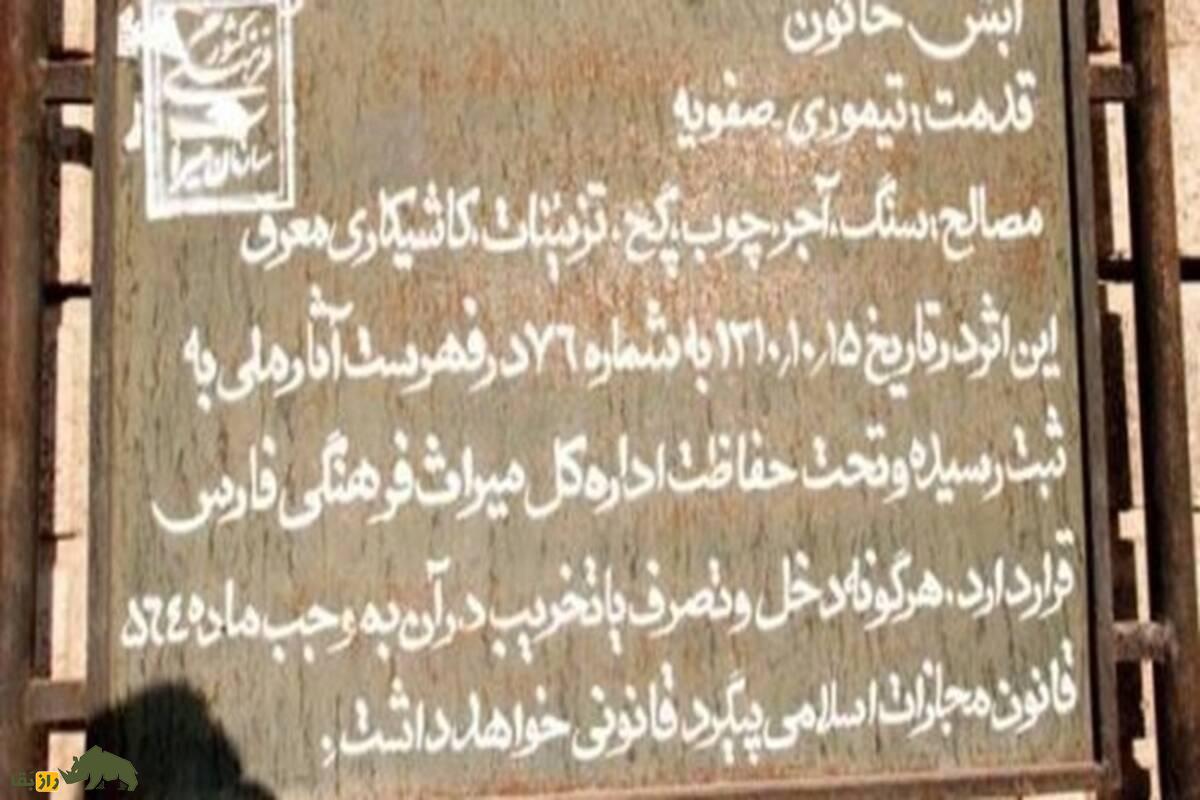 ابش خاتون
قدمت؛ تیموری. صفویه
مصالح؛ سنگ، آجر، چوب، گچ، تزئینات، کاشیکاری معرق
این اثر در تاریخ ۱۳۱۰٫۱۰٫۱۵ به شماره ۷۶ در فهرست آثار ملی به
ثبت رسیده و تحت حفاظت اداره کل میراث فرهنگی فارس
قرار دارد، هرگونه دخل و تصرف یا تخریب در آن به وجب ماده ۵٦٤
قانون مجازات اسلامی پیگرد قانونی خواهد داشت.
کشور
فرهنگی
سازمان میرا
راز بقا